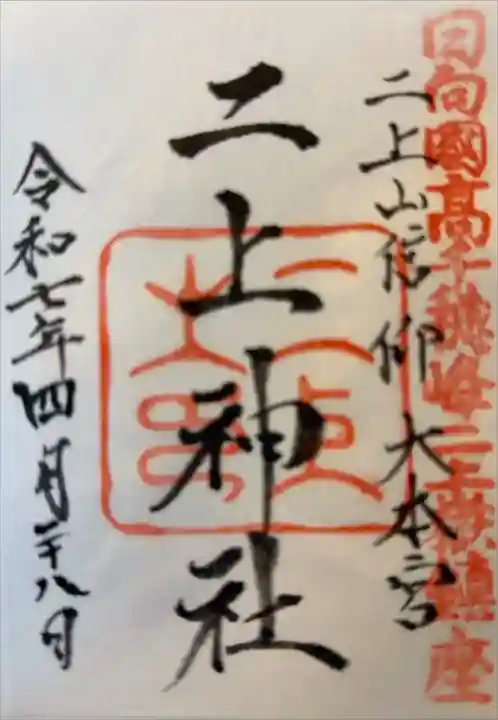 日向國高千穂峰二上嶽鎮座
二上山信仰 大本宮
二上神社
令和七年四月二十八日